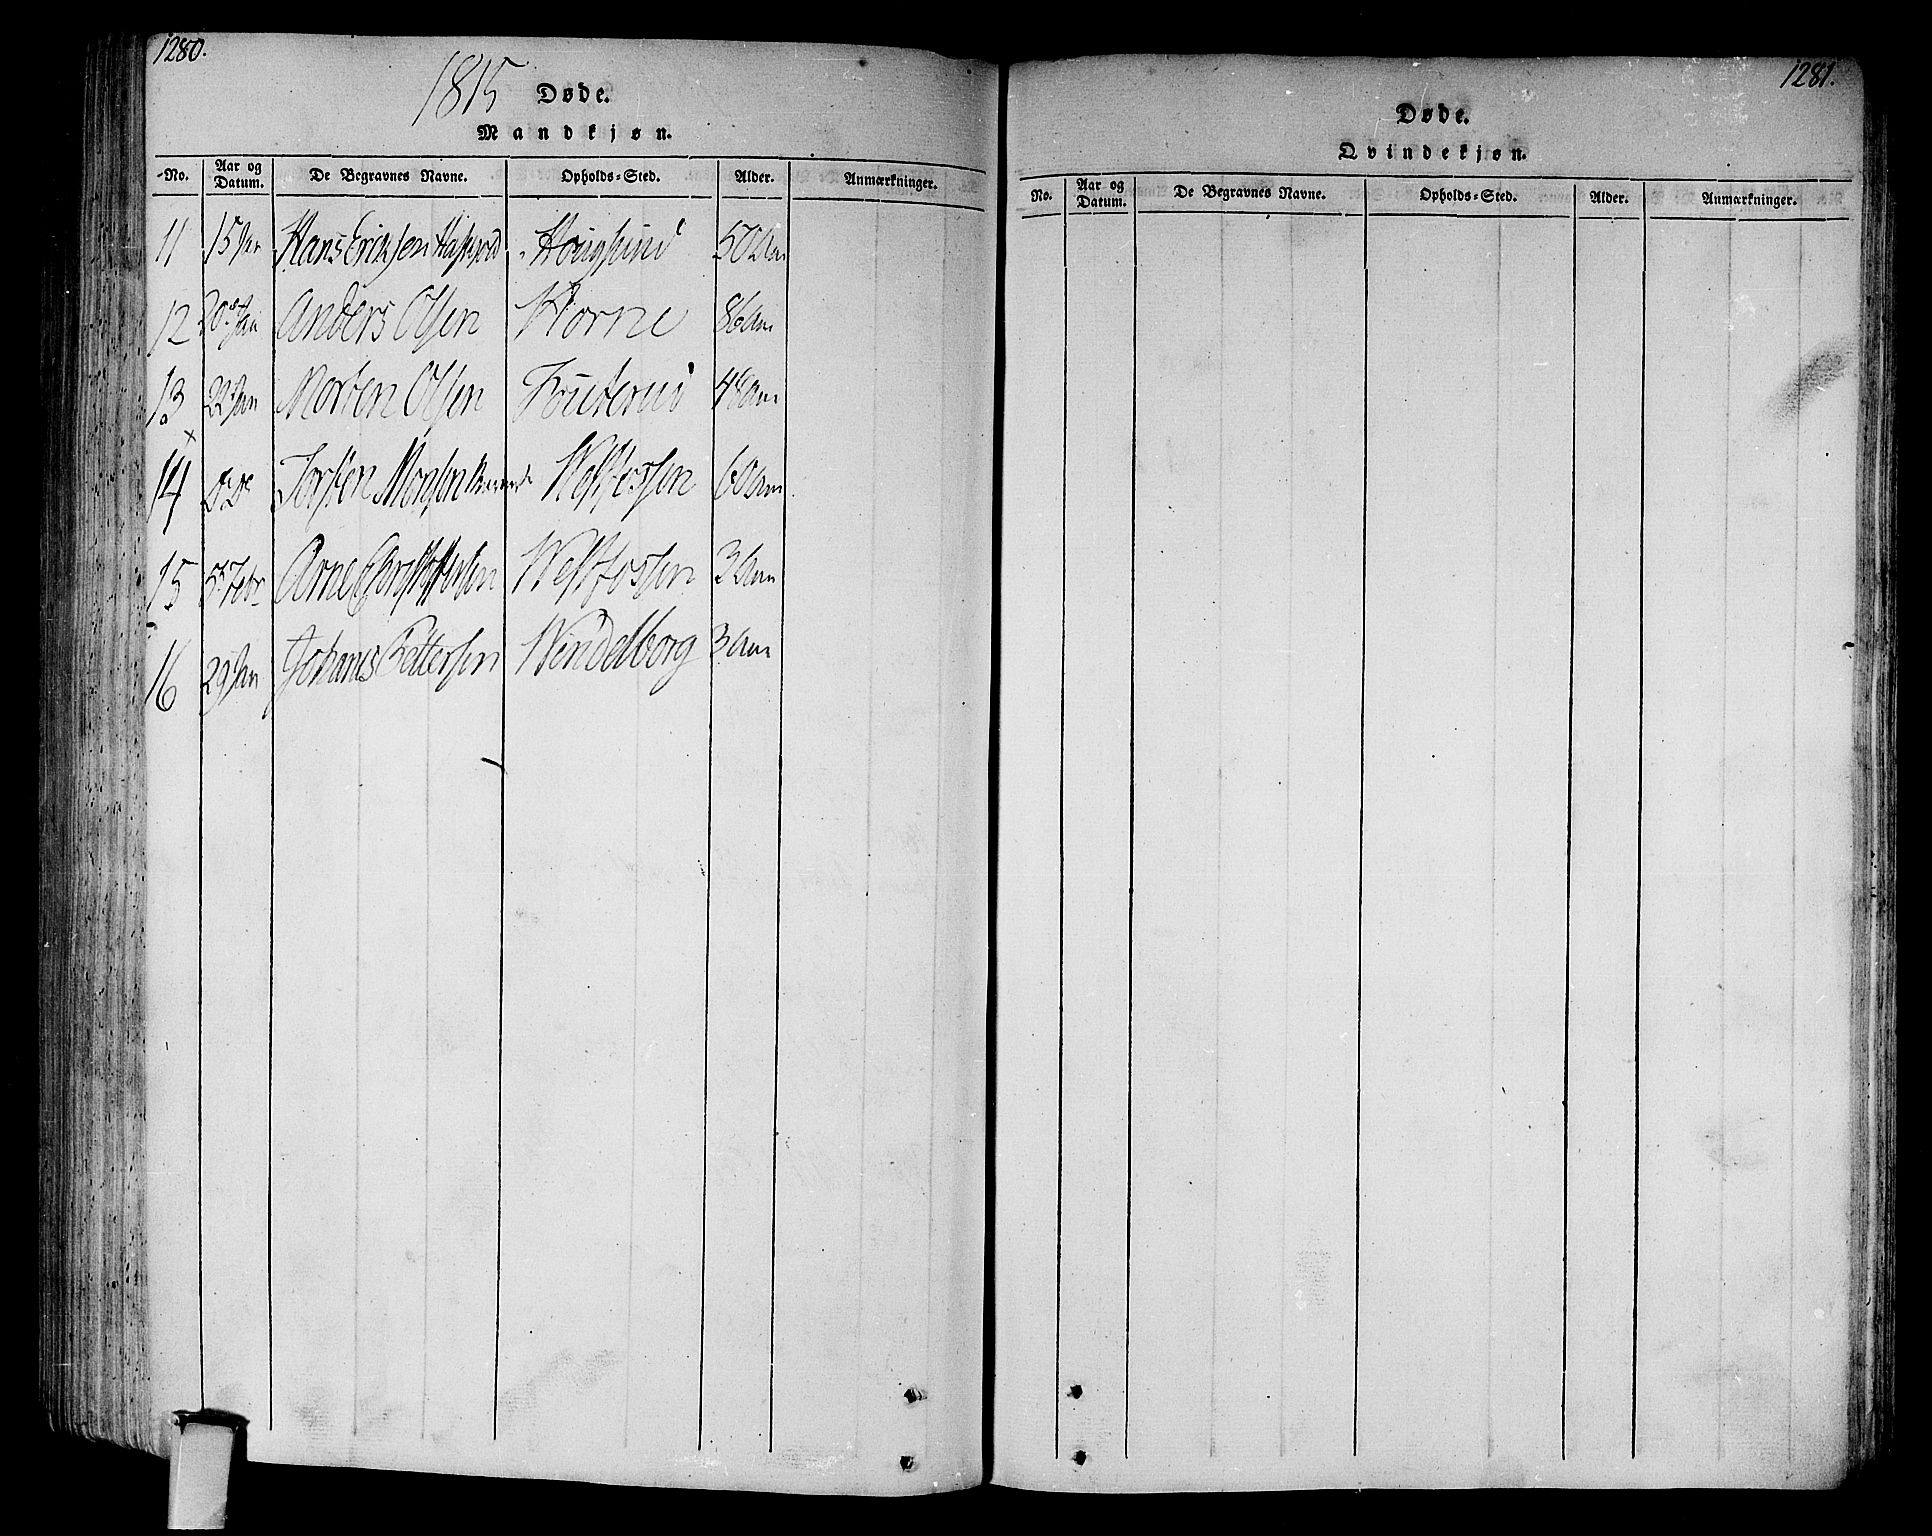 1280.
1815
Døde.
Mandkjøn.
No. Aar og Datum. De Begravnes Navne. Opholds-Sted. Alder. Anmærkninger.
11 15 Jan Hans Eriksen Hougsund 50 Aar
12 20 Jan Anders Olsen Horne 86 Aar
13 22 Jan Morten Olsen 48 Aar
14 Torsten Westfossen 60 Aar
15 5 Febr Arne Christophersen Westfossen 3 Aar
16 29 Jan Johanes Pettersen Windelborg 3 Aar
1281.
Døde.
Qvindekjøn.
No. Aar og Datum. De Begravnes Navne. Opholds-Sted. Alder. Anmærkninger.